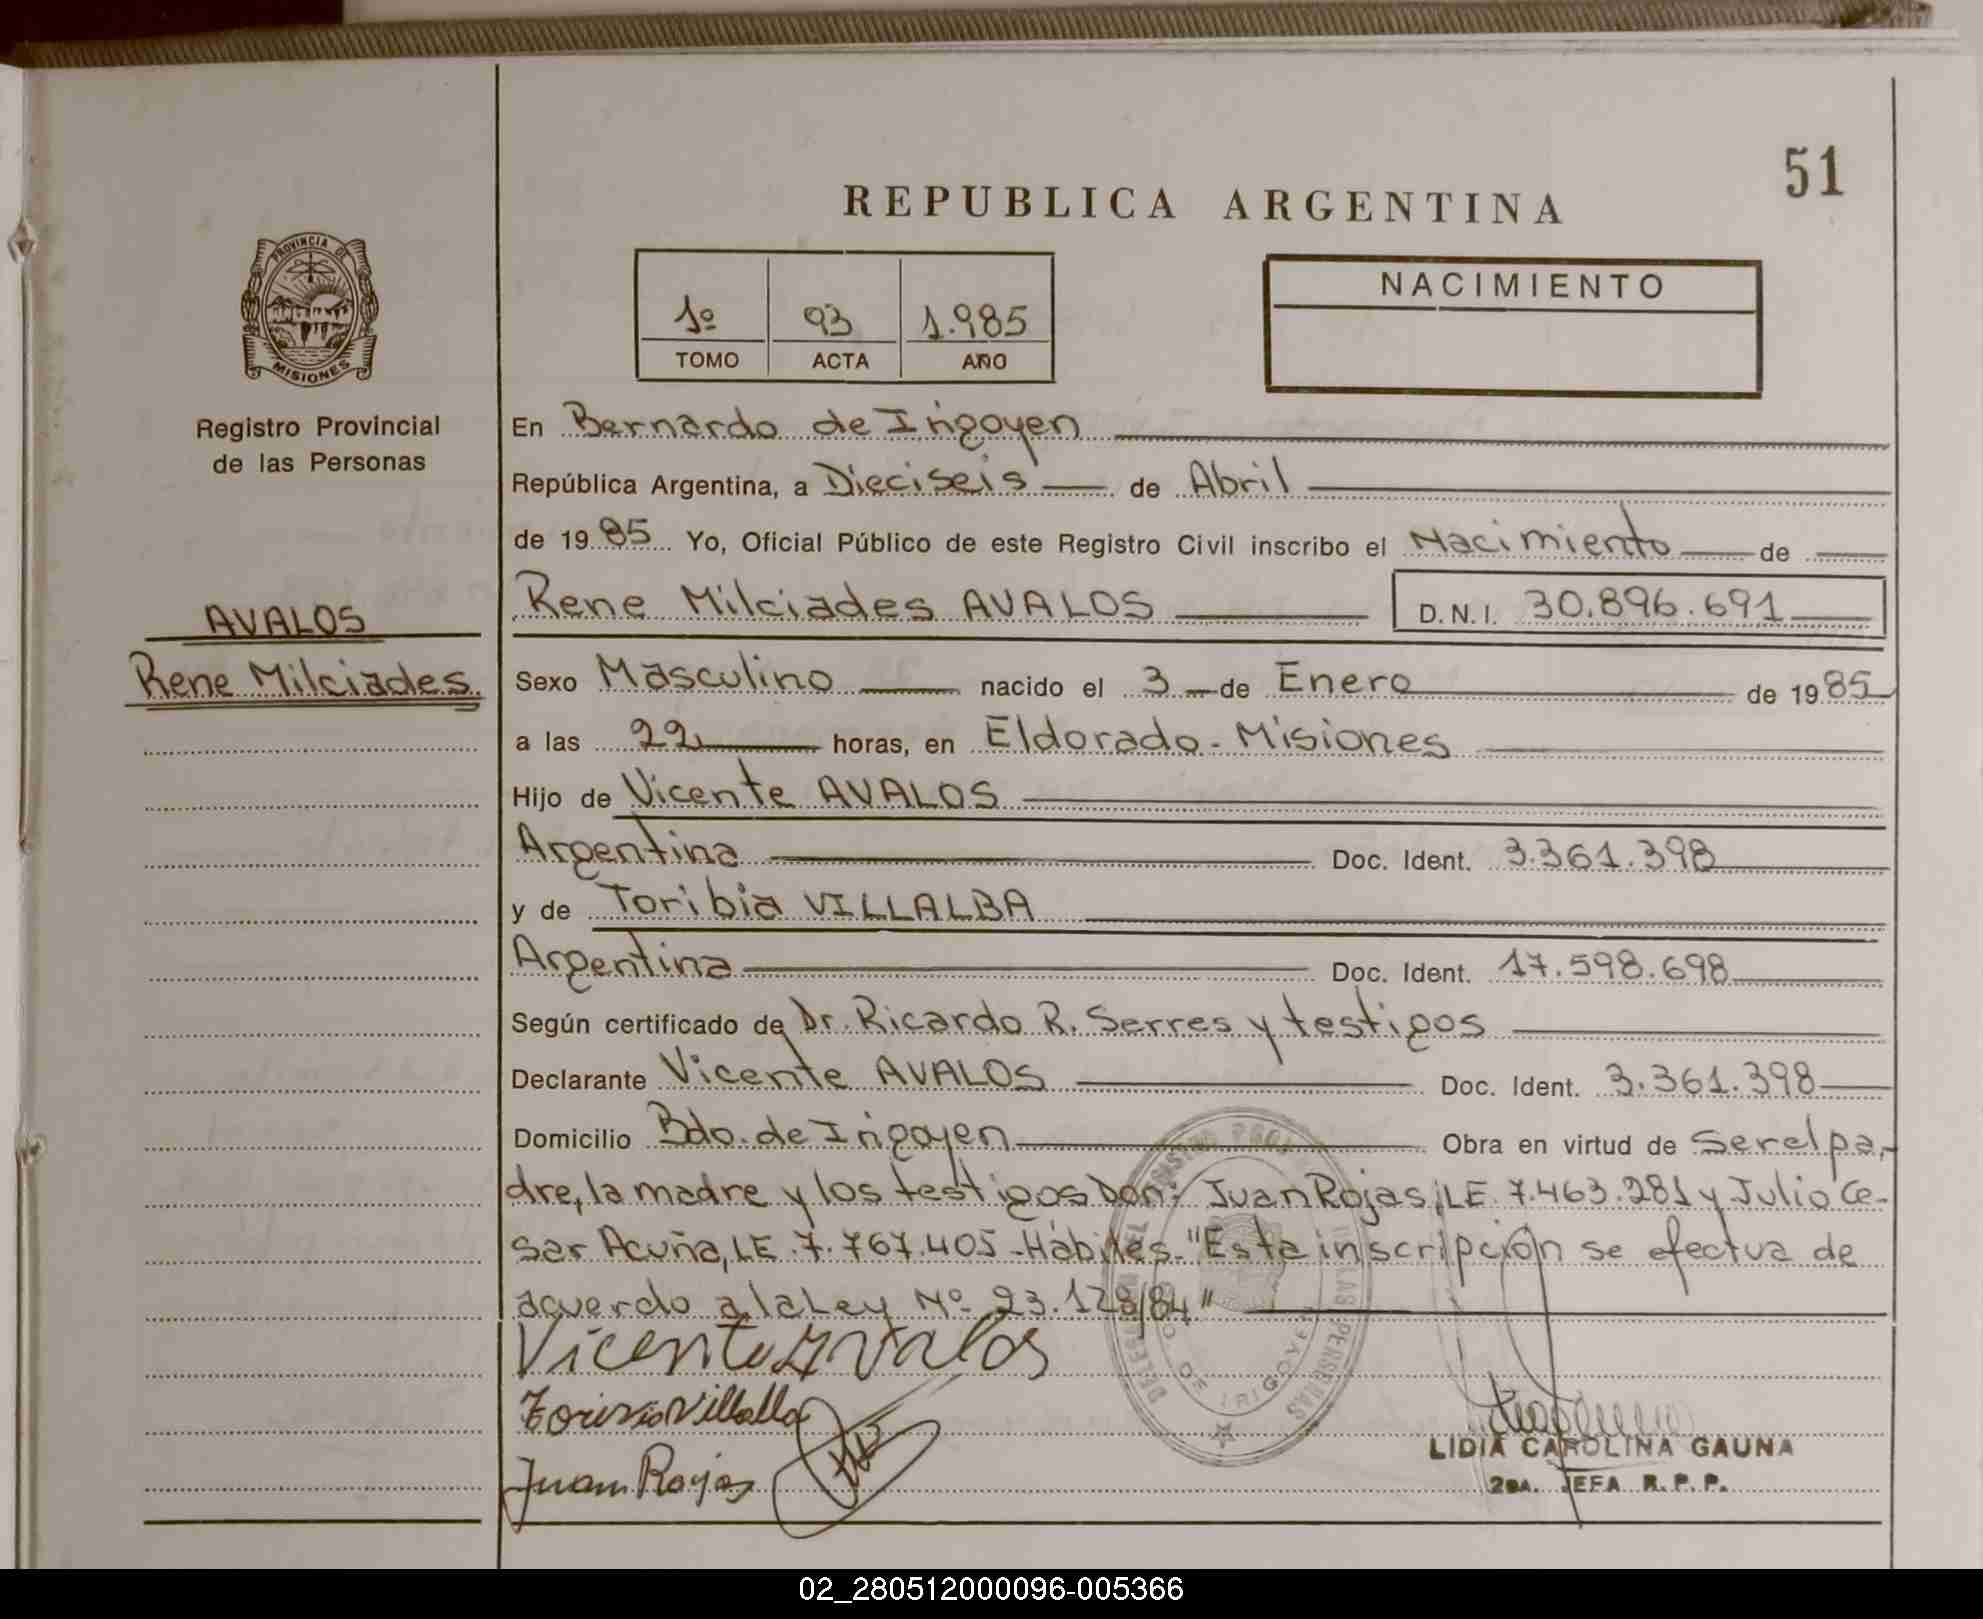 51
REPUBLICA ARGENTINA
PROVINCIA DE
MISIONES
Registro Provincial
de las Personas
1º 93 1.985
TOMO ACTA AÑO
NACIMIENTO
En Bernardo de Irigoyen
República Argentina, a Dieciseis de Abril
de 1985 Yo, Oficial Público de este Registro Civil inscribo el Nacimiento de
AVALOS
Rene Milciades
Rene Milciades AVALOS D.N.I. 30.896.691
Sexo Masculino nacido el 3 de Enero de 1985
a las 22 horas, en Eldorado - Misiones
Hijo de Vicente AVALOS
Argentina Doc. Ident. 3.361.398
y de Toribia VILLALBA
Argentina Doc. Ident. 17.598.698
Según certificado de Dr. Ricardo R. Serres y testigos
Declarante Vicente AVALOS Doc. Ident. 3.361.398
Domicilio Bdo. de Irigoyen Obra en virtud de Ser el pa-
dre, la madre y los testigos Don: Juan Rojas, LE. 7.463.281 y Julio Ce-
sar Acuña, LE. 7.767.405 - Hábiles. "Esta inscripción se efectua de
acuerdo a la Ley Nº 23.128/84"
Vicente Avalos
Juan Rojas
LIDIA CAROLINA GAUNA
2DA. JEFA R.P.P.
DE IRIGOYEN
02_280512000096-005366